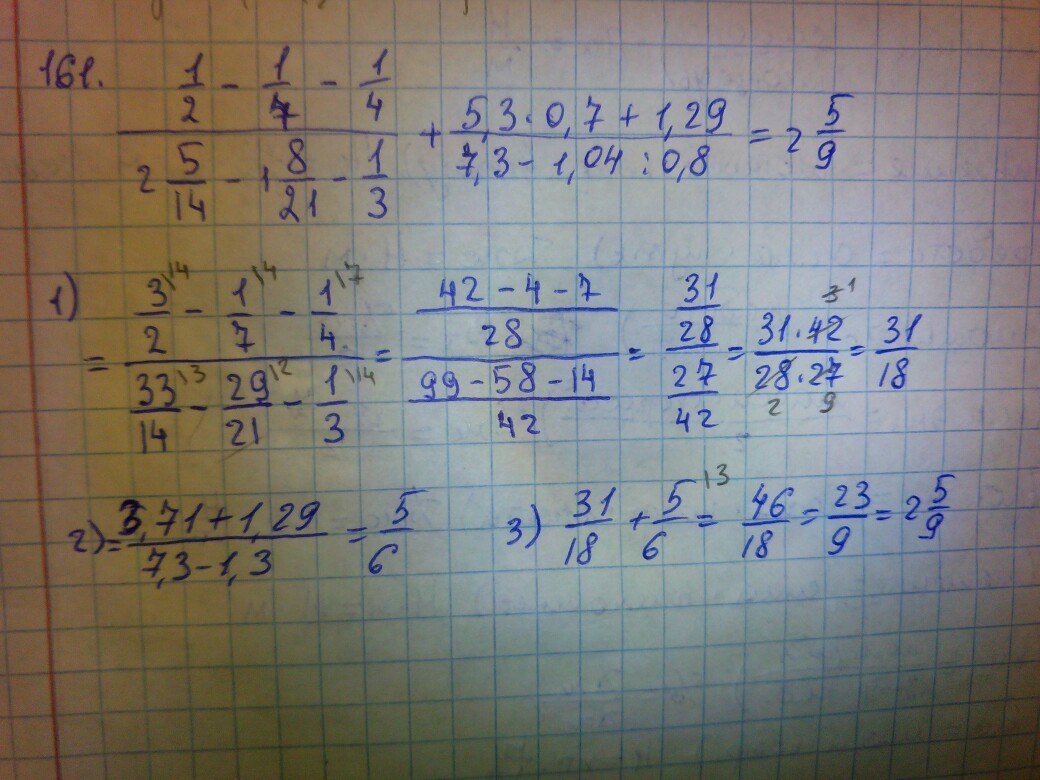 161. (1/2 - 1/7 - 1/4)/(2 5/14 - 1 8/21 - 1/3) + (5,3 · 0,7 + 1,29)/(7,3 - 1,04 : 0,8) = 2 5/9
1) = (3/2\14 - 1/7\4 - 1/4\7)/(33/14\3 - 29/21\2 - 1/3\14) = ((42 - 4 - 7)/28)/((99 - 58 - 14)/42) = (31/28)/(27/42) = (31 · 42)/(28 · 27) = 31/18
2) = (3,71 + 1,29)/(7,3 - 1,3) = 5/6 3) 31/18 + 5/6\3 = 46/18 = 23/9 = 2 5/9